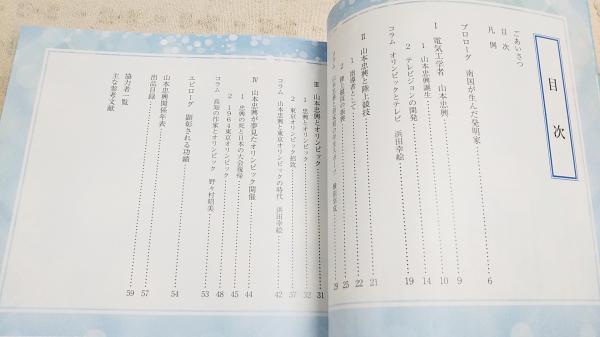 目次
ごあいさつ
目次
凡例 6
プロローグ 南国が生んだ発明家 9
Ⅰ 電気工学者 山本忠興 10
1 山本忠興誕生 14
2 テレビジョンの開発 19
コラム オリンピックとテレビ 浜田幸絵
Ⅱ 山本忠興と陸上競技 21
1 指導者として 22
2 陸上競技の振興 25
コラム 29
Ⅲ 山本忠興とオリンピック 31
1 忠興とオリンピック 32
2 東京オリンピック招致 37
コラム 山本忠興と東京オリンピックの時代 浜田幸絵 42
Ⅳ 山本忠興が夢見たオリンピック開催 44
1 忠興の死と日本の大会復帰 45
2 1964東京オリンピック 48
コラム 高知の作家とオリンピック 野々村昭美 53
エピローグ 顕彰される功績 54
山本忠興関係年表
出品目録 57
協力者一覧
主な参考文献 59